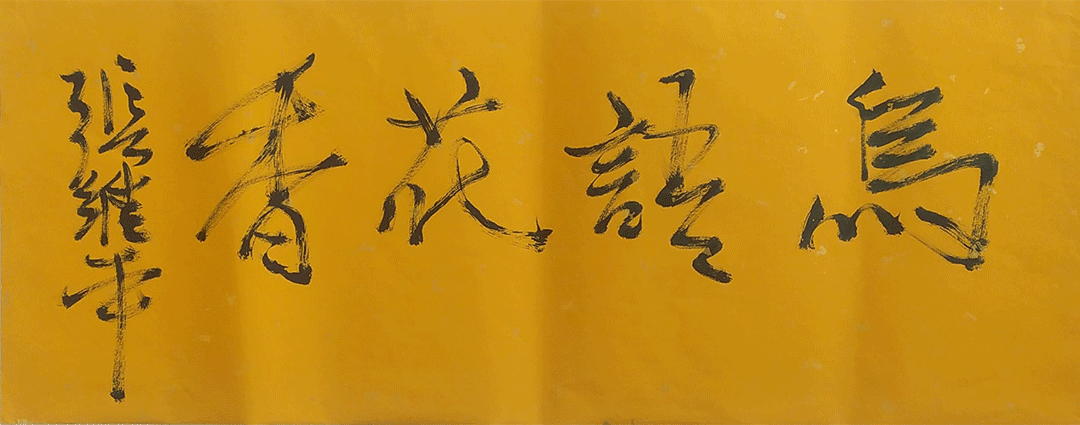 鳥語花香
張維